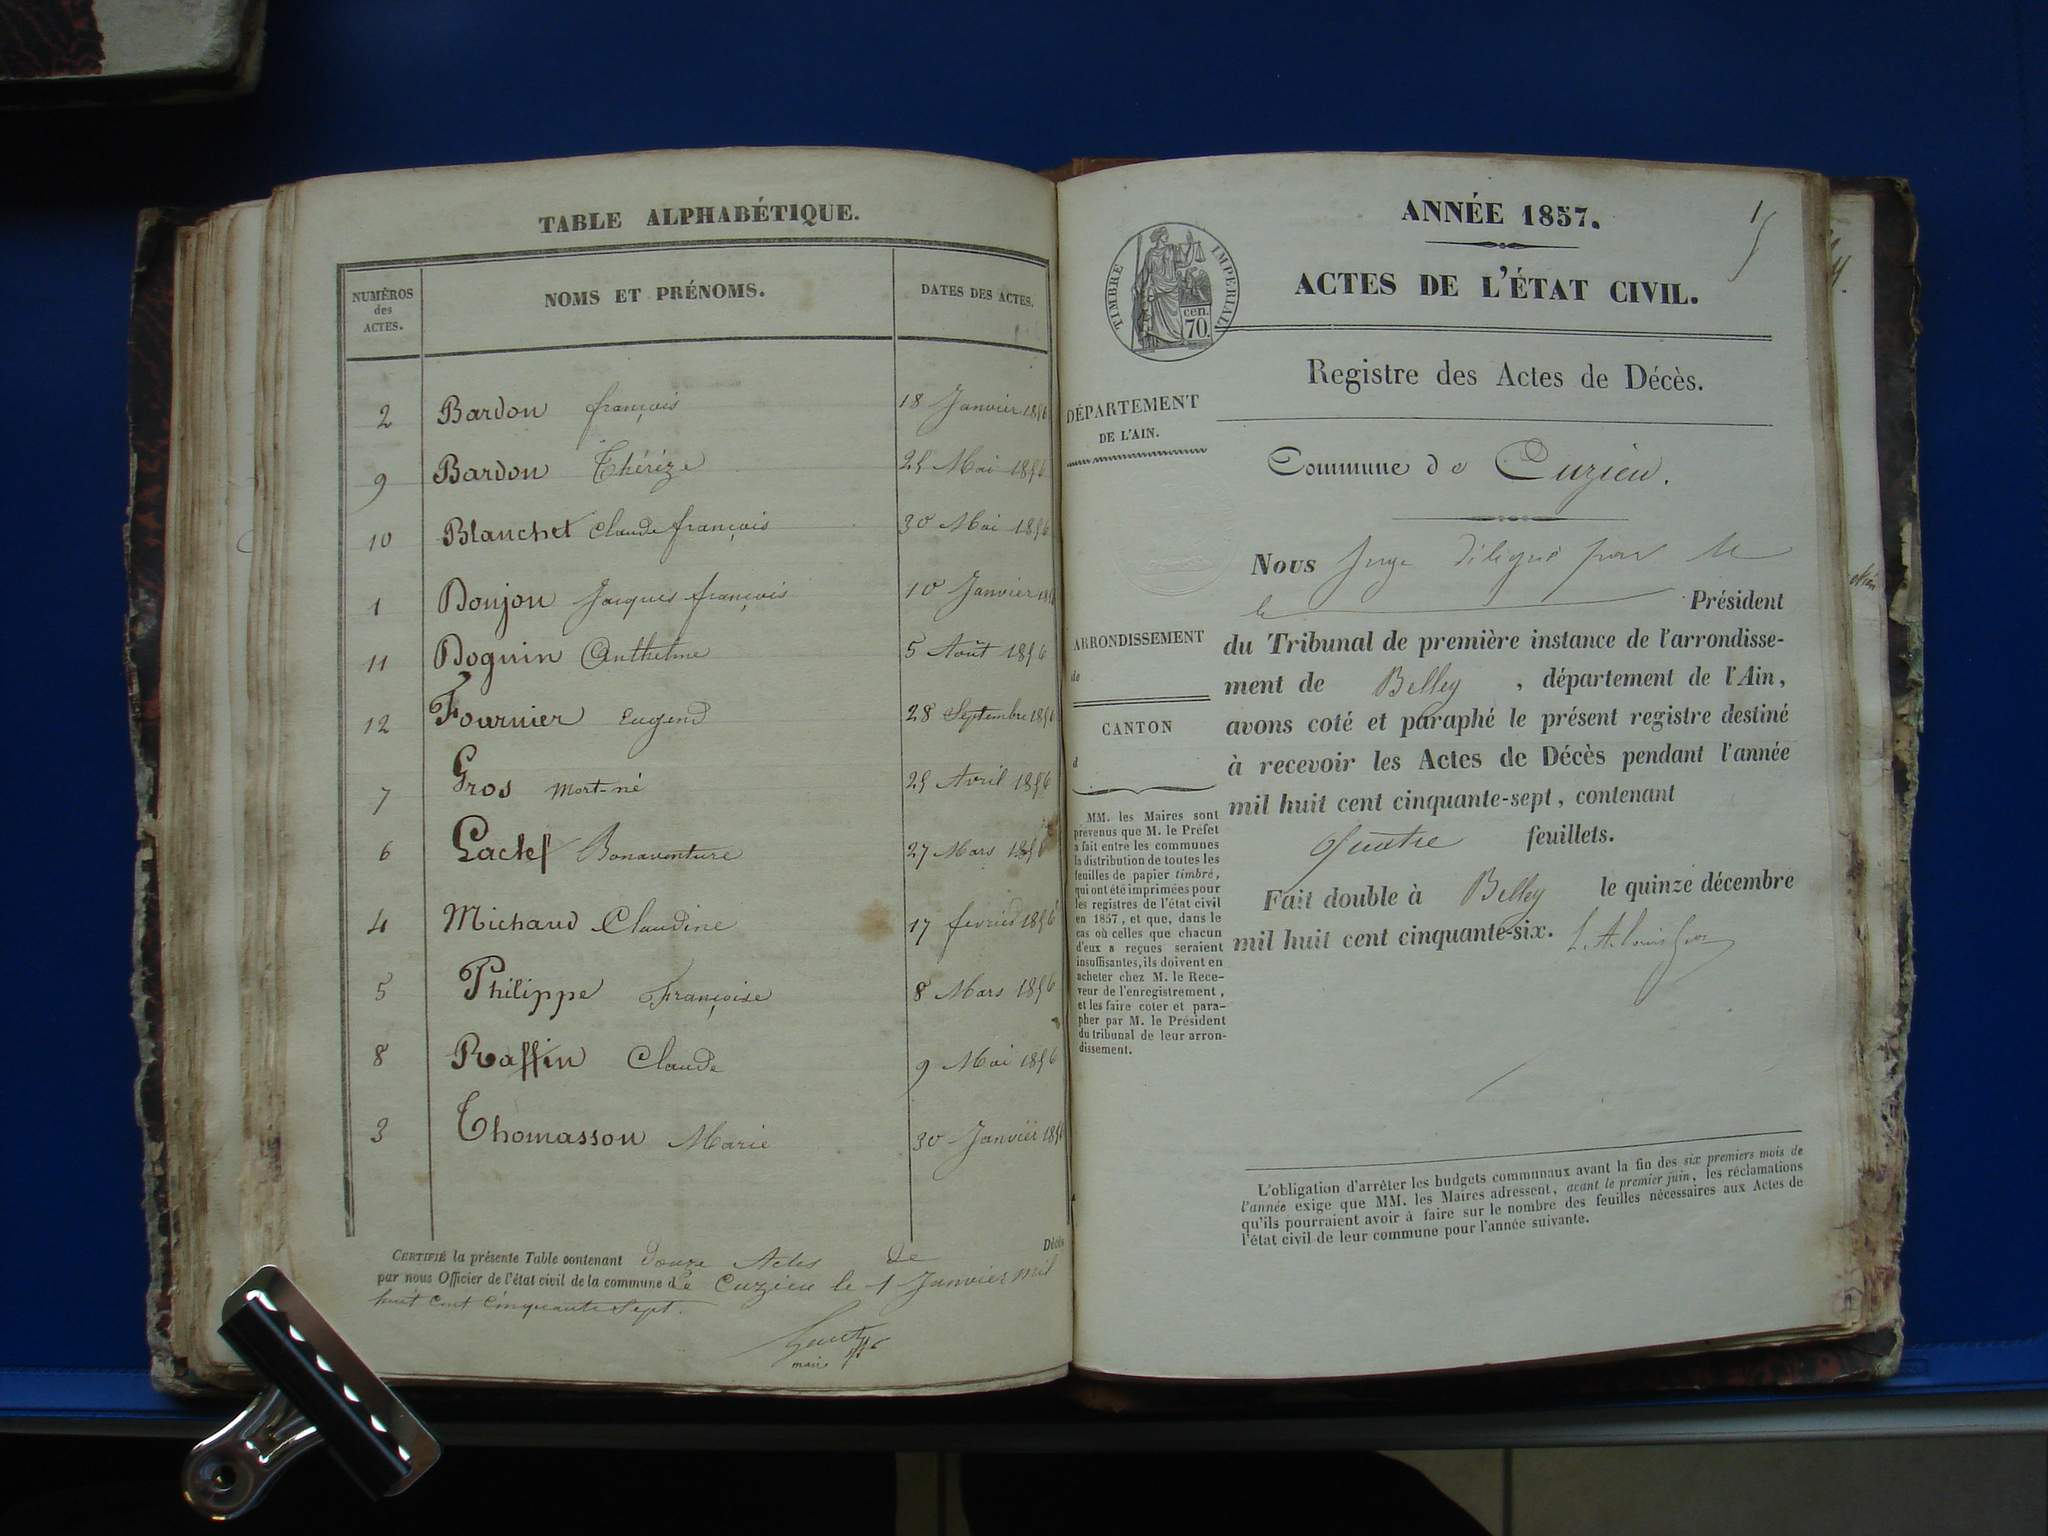 TABLE ALPHABÉTIQUE.
NUMÉROS des ACTES. NOMS ET PRÉNOMS. DATES DES ACTES.
2 Bardon françois 18 Janvier 1856
9 Bardon Thérèze 25 Mai 1856
10 Blanchet Claude françois 30 Mai 1856
1 Bonjon Jacques françois 10 Janvier 1856
11 Boguin Anthelme 5 Août 1856
12 Fournier Eugend 28 Septembre 1856
7 Gros Mort-né 25 Avril 1856
6 Bonaventure 27 Mars 1856
4 Michaud Claudine 17 fevrier 1856
5 Philippe Françoise 8 Mars 1856
8 Raffin Claude 9 Mai 1856
3 Thomasson Marie 30 Janvier 1856
CERTIFIÉ la présente Table contenant douze Actes de Décès
par nous Officier de l'état civil de la commune de Cuzieu le 1 Janvier mil
huit cent cinquante sept.
maire
1
ANNÉE 1857.
ACTES DE L'ÉTAT CIVIL.
TIMBRE IMPERIAL
cen.
70.
Registre des Actes de Décès.
DÉPARTEMENT
DE L'AIN.
Commune de Cuzieu.
Nous Juge délégué pour M
le Président
du Tribunal de première instance de l'arrondisse-
ment de Belley, département de l'Ain,
avons coté et paraphé le présent registre destiné
à recevoir les Actes de Décès pendant l'année
mil huit cent cinquante-sept, contenant
quatre feuillets.
Fait double à Belley le quinze décembre
mil huit cent cinquante-six.
ARRONDISSEMENT
de
CANTON
d
MM. les Maires sont
prévenus que M. le Préfet
a fait entre les communes
la distribution de toutes les
feuilles de papier timbré,
qui ont été imprimées pour
les registres de l'état civil
en 1857, et que, dans le
cas où celles que chacun
d'eux a reçues seraient
insuffisantes, ils doivent en
acheter chez M. le Rece-
veur de l'enregistrement,
et les faire coter et para-
pher par M. le Président
du tribunal de leur arron-
dissement.
L'obligation d'arrêter les budgets communaux avant la fin des six premiers mois de
l'année exige que MM. les Maires adressent, avant le premier juin, les réclamations
qu'ils pourraient avoir à faire sur le nombre des feuilles nécessaires aux Actes de
l'état civil de leur commune pour l'année suivante.